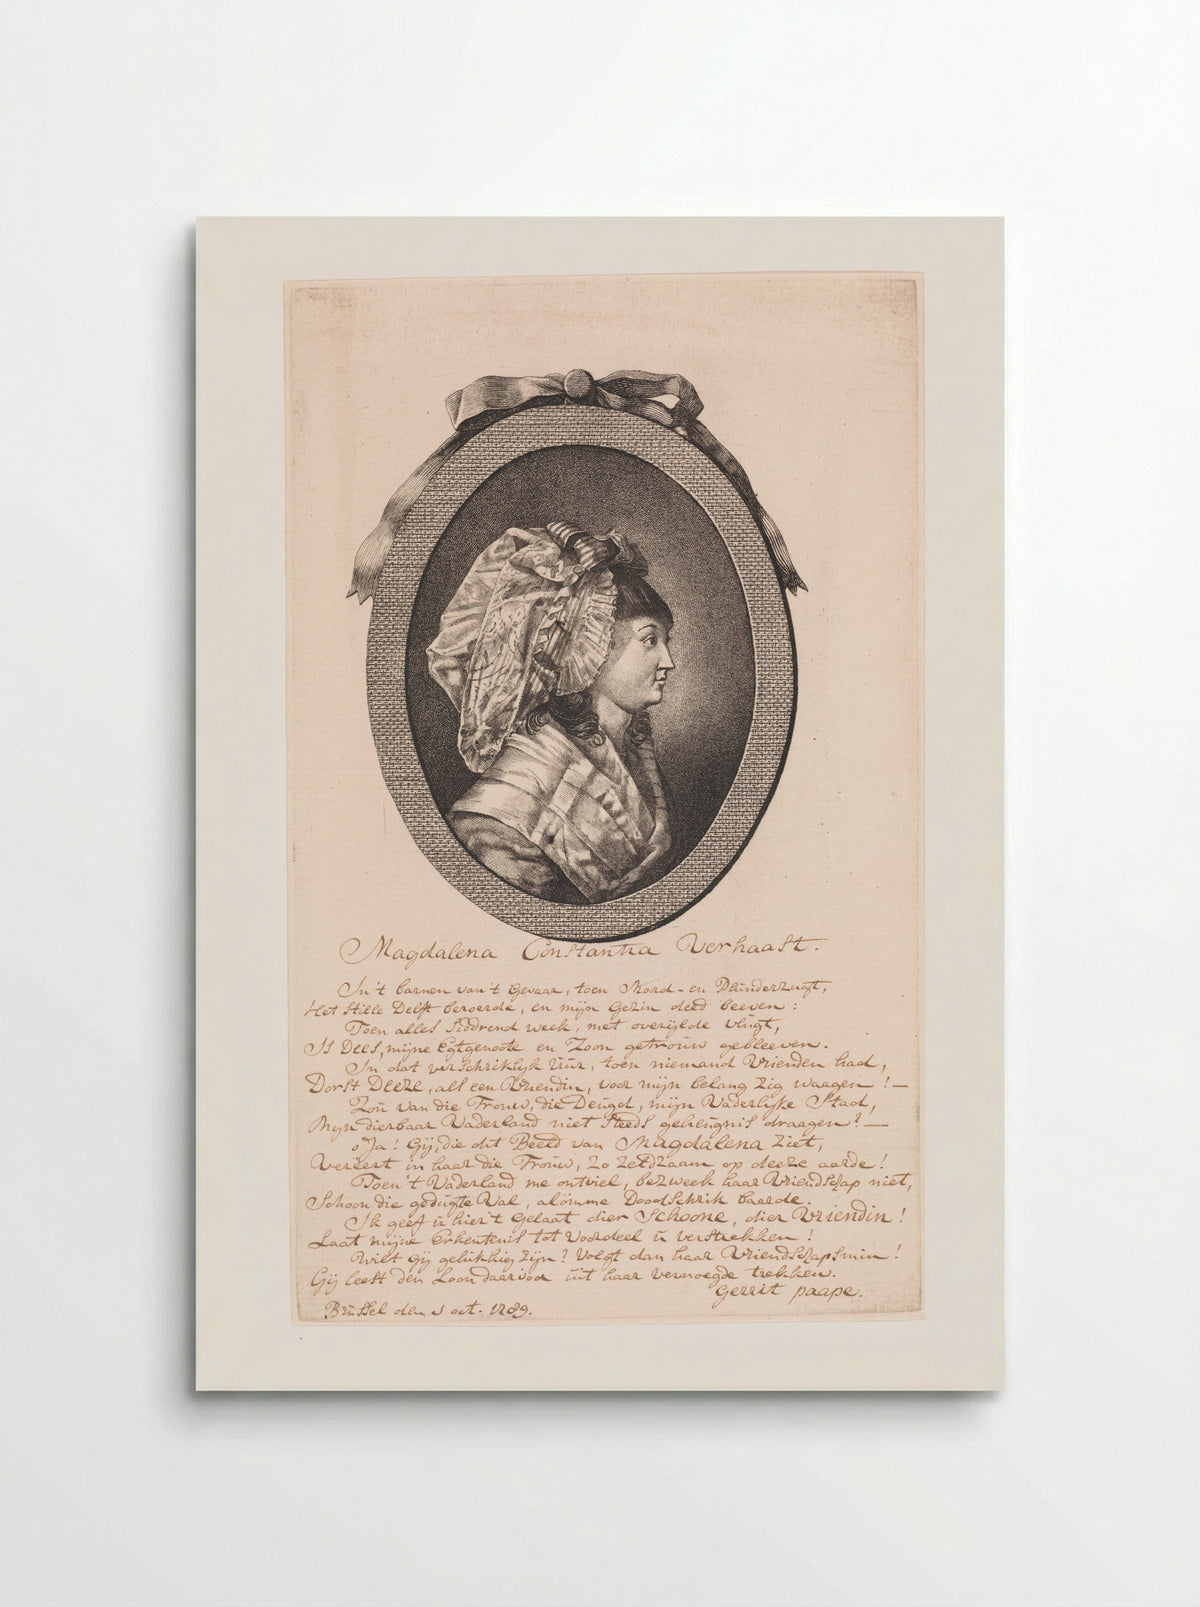 Magdalena Constantia Verhaast.
In 't barnen van 't Gevaar, toen Moord- en Plunderzugt,
Het stille Delft beroerde, en mijn Gezin deed beeven:
Toen alles siddrend week, met overijlde vlugt,
Is Deez, mijne Egtgenoote en Zoon getrouw gebleeven.
In dat verschriklijk Uur, toen niemand Vrienden had,
Dorst Deeze, als een Vriendin, voor mijn belang zig waagen! —
Zou van die Trouw, die Deugd, mijn Vaderlijke Stad,
Mijn dierbaar Vaderland niet steeds geheugnis draagen? —
o Ja! Gij, die dit Beeld van Magdalena ziet,
Vereert in haar die Trouw, zo zeldzaam op deeze aarde!
Toen 't Vaderland me ontviel, bezweek haar Vriendschap niet,
Schoon die gedugte Val, alömme Doodschrik baarde.
Ik geef u hier 't Gelaat dier Schoone, dier Vriendin!
Laat mijne Erkentenis tot Voordeel u verstrekken!
Wilt Gij gelukkig zijn? Volgt dan haar Vriendschapsmin!
Gij leest den Loon daarvoor uit haar vernoegde trekken.
Gerrit paape.
Brussel den oct. 1789.